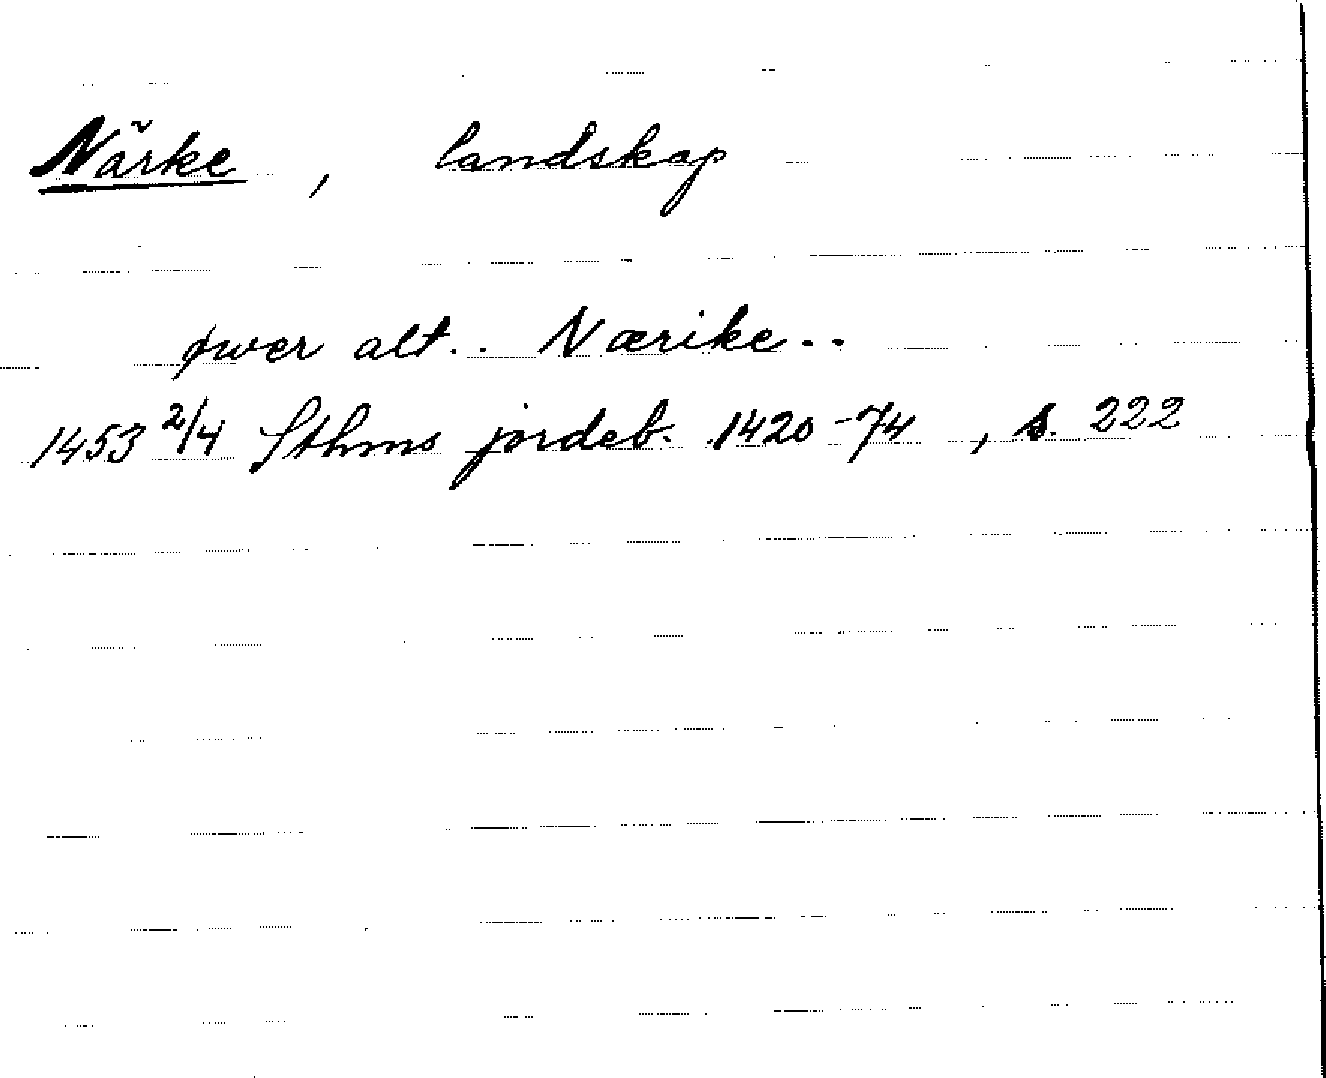 Närke, landskap
øwer alt.. Nærike..
1453 2/4 Sthms jordeb. 1420-74, s. 222